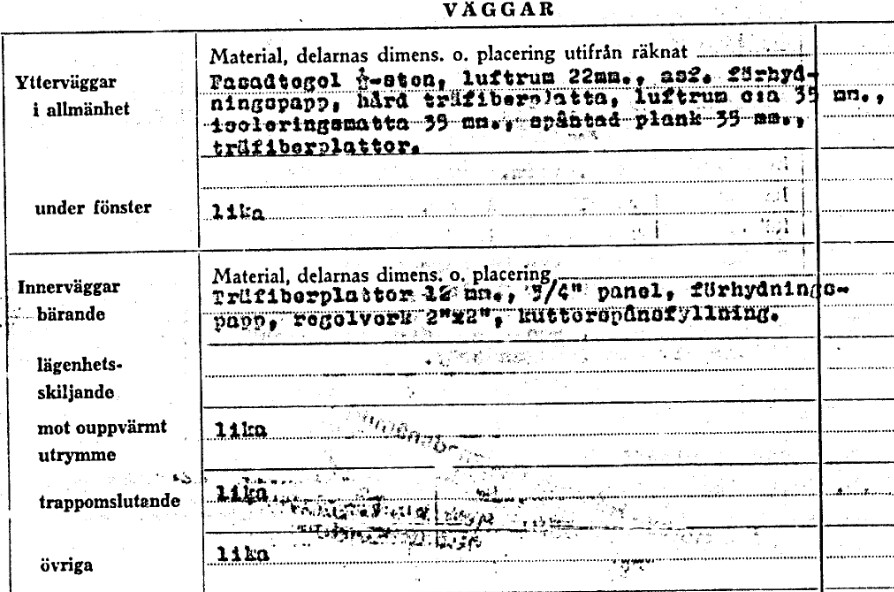 VÄGGAR
Material, delarnas dimens. o. placering utifrån räknat
Ytterväggar
i allmänhet
Fasadtegel ½-sten, luftrum 22mm., asf. förhyd-
ningspapp, hård träfiberplatta, luftrum c:a 35 mm.,
isoleringsmatta 35 mm., spåntad plank 35 mm.,
träfiberplattor.
under fönster
lika
Innerväggar
bärande
Material, delarnas dimens. o. placering
Träfiberplattor 12 mm., 3/4" panel, förhydnings-
papp, regelverk 2"x2", kutterspånsfyllning.
lägenhets-
skiljande
mot ouppvärmt
utrymme
lika
trappomslutande
lika
övriga
lika